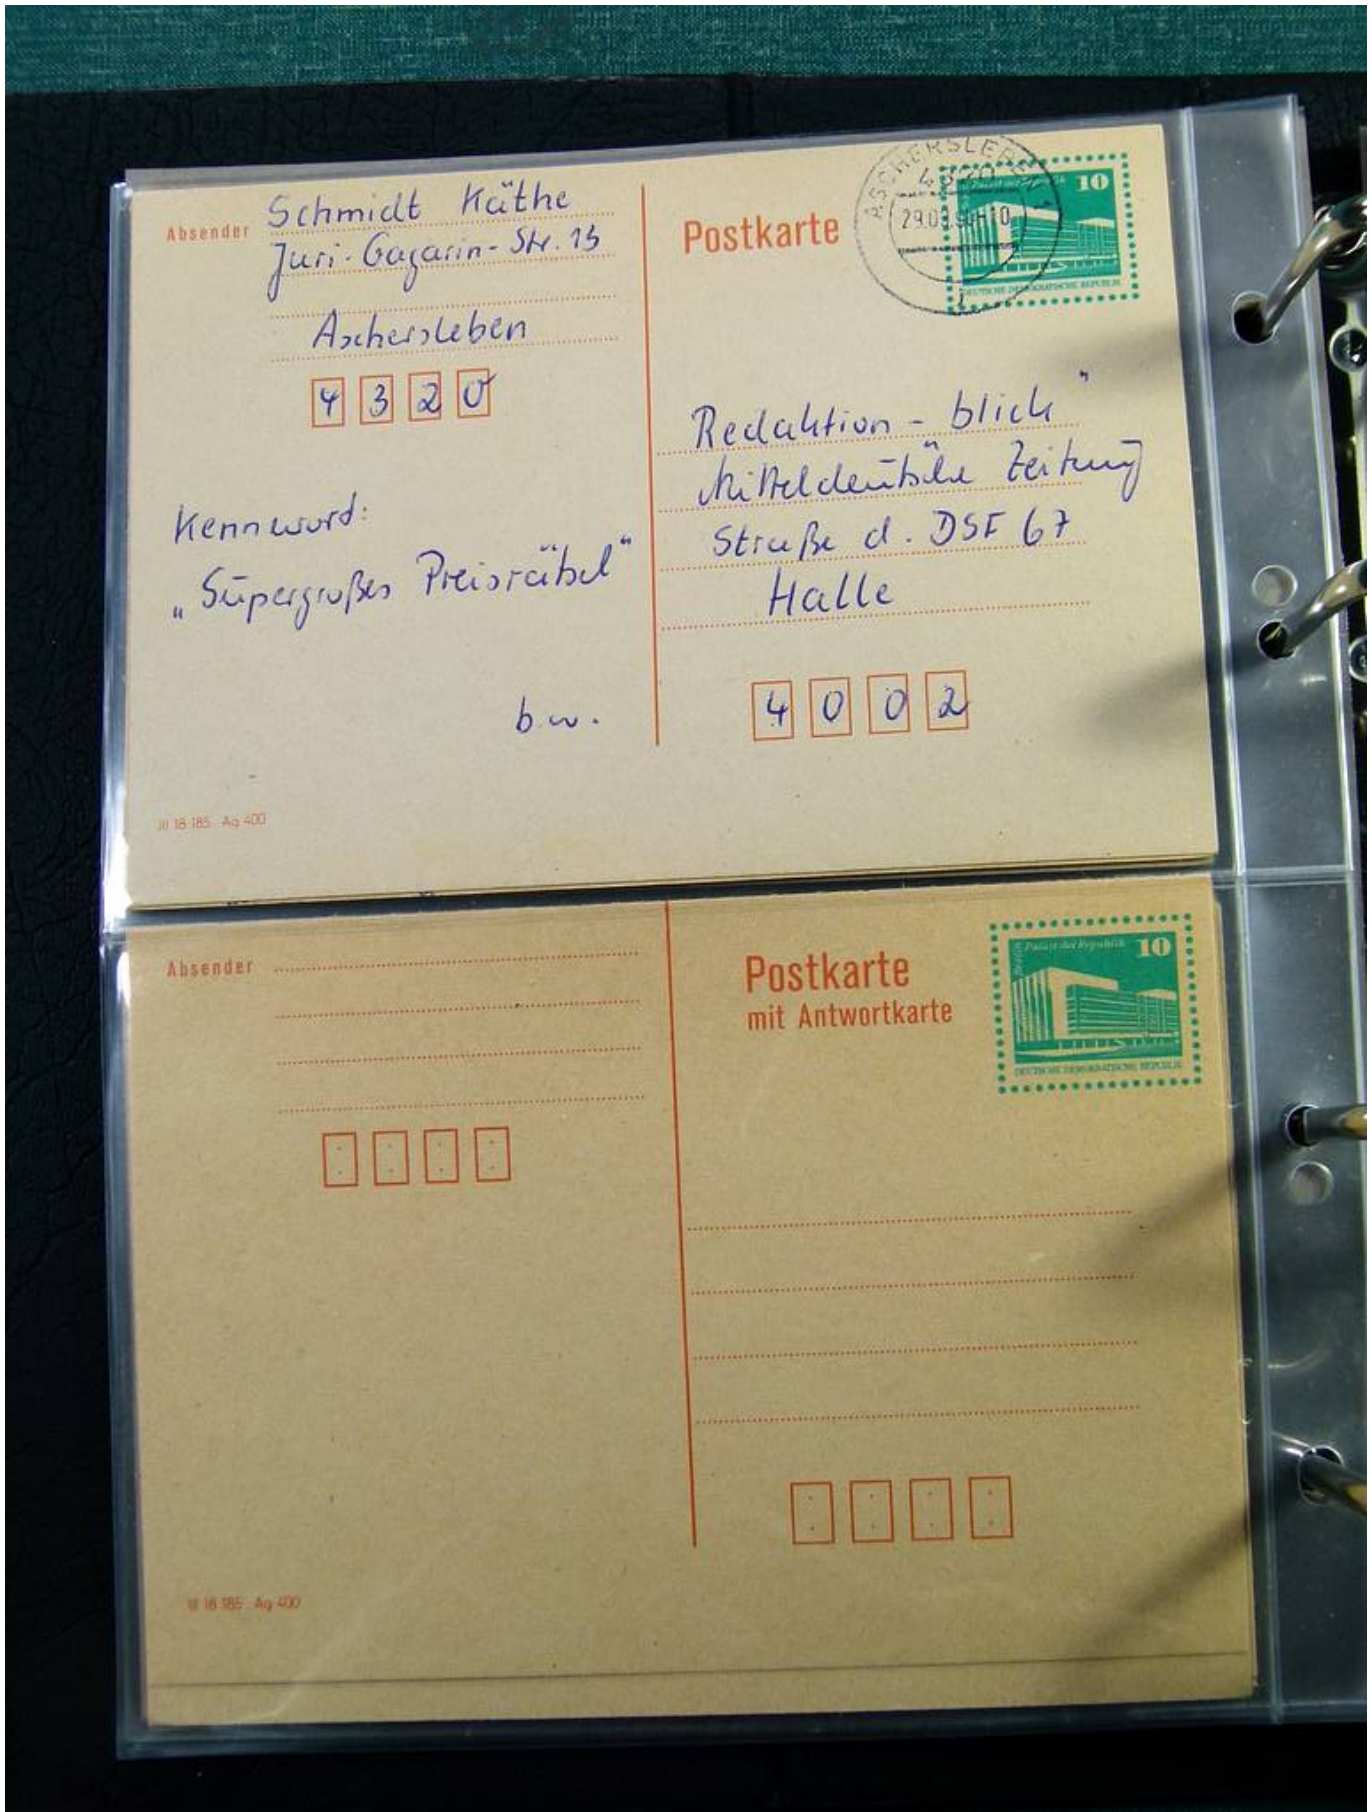 Absender
Schmidt Käthe
Juri-Gagarin-Str. 13
Aschersleben
4320
Kennwort:
„Supergroßes Preisrätsel“
b.w.
III 18 185 Ag 400
Postkarte
ASCHERSLEBEN 1
4320
29.03.90-10
10
DEUTSCHE DEMOKRATISCHE REPUBLIK
Redaktion - blick"
Mitteldeutsche Zeitung
Straße d. DSF 67
Halle
4002
Absender
III 18 185 Ag 400
Postkarte
mit Antwortkarte
Berlin
Palast der Republik
10
DEUTSCHE DEMOKRATISCHE REPUBLIK